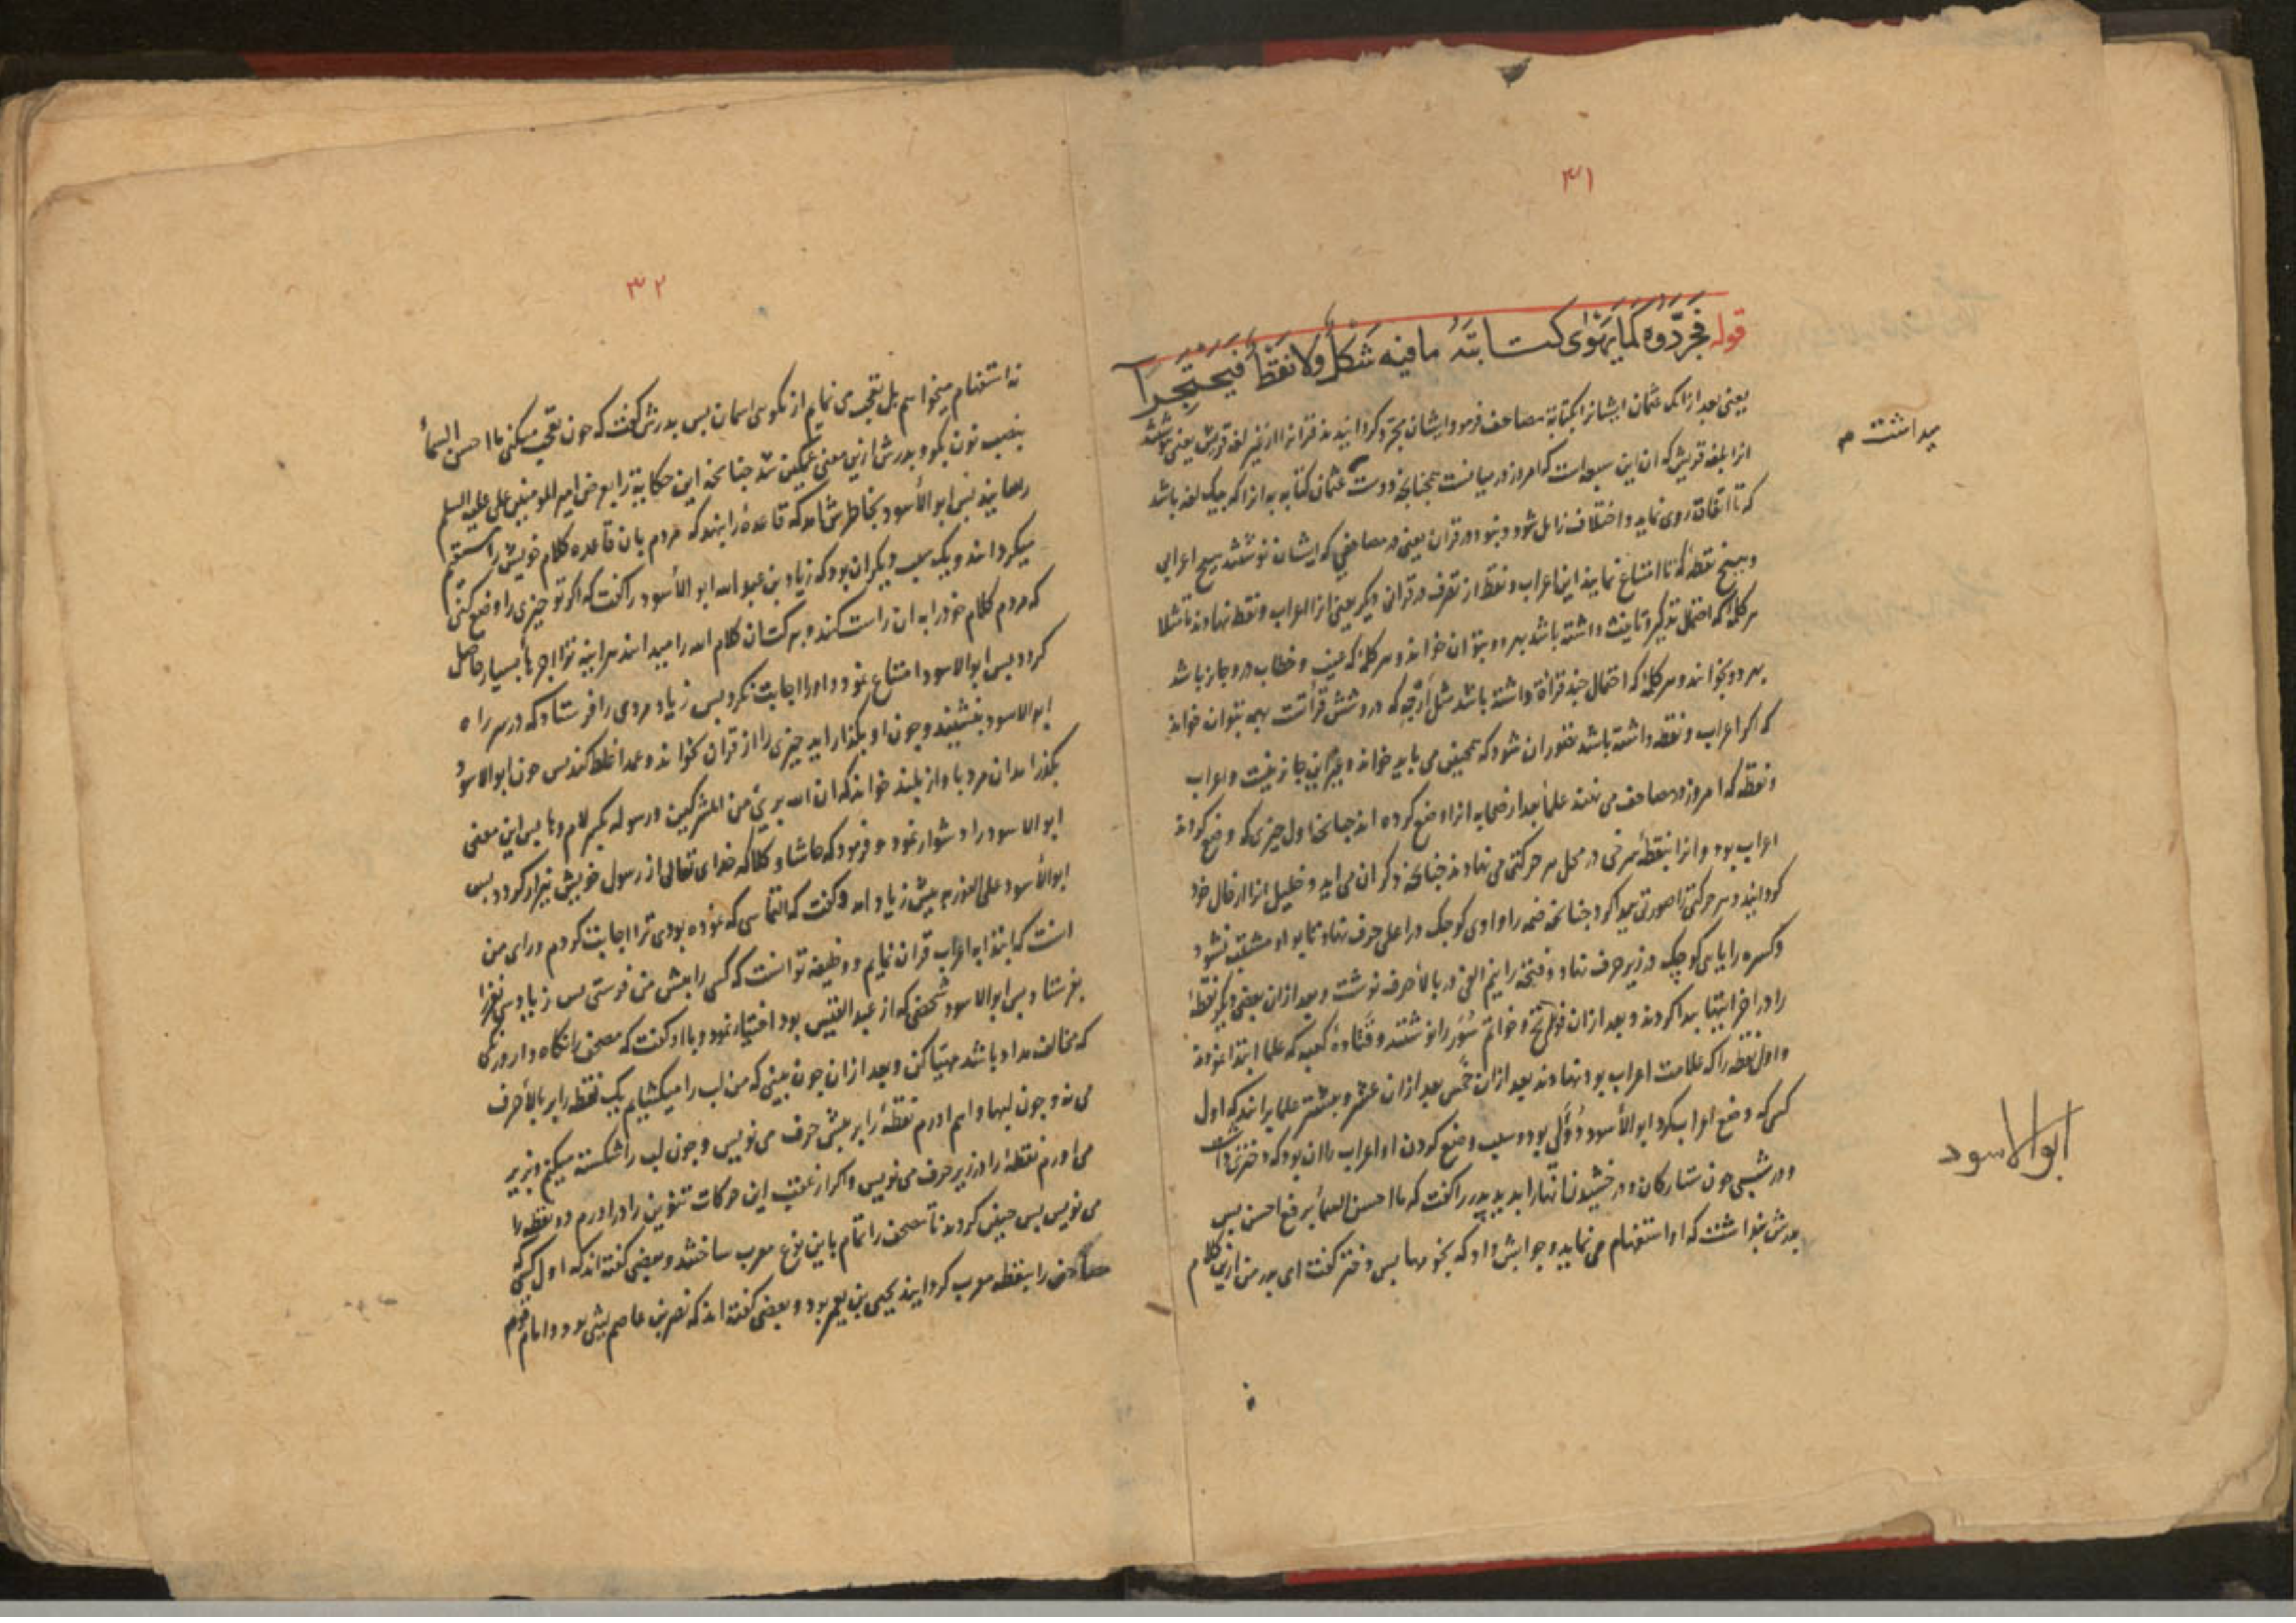 ۳۱
قوله فَجَرَّدُوه كَمَا يَهْوٰى كتابتَهُ ما فيه شَكْلٌ ولا نَقْطٌ فَيَحْتَجِرَا
یعنی بعد از انک عثمان ایشانرا بکتابة مصاحف فرمود ایشان مجرد کردانیدند قرانرا از غیر لغة قریش یعنی نوشتند
انرا بلغة قریش که ان این سبعه است که امروز در میانست همچنانچه دوست عثمان کتابه به انرا که بیک لغه باشد
که تا اتفاق روی نماید و اختلاف زایل شود و نبود در قران یعنی در مصاحفی که ایشان نوشتند هیچ اعرابی
و هیچ نقطه که تا امتناع نمایند این اعراب و نقط از تصرف در قرانی دیکر یعنی انرا اعراب و نقط نهادند تا مثلا
هر کلمه که احتمال تذکیر و تانیث داشته باشد بهر دو بتوان خواند و هر کلمه که غیب و خطاب درو جایز باشد
بهر دو بخوانند و هر کلمه که احتمال چند قراة داشته باشد مثل اَرْجِه که درو شش قرأتست بهمه بتوان خواند
که اکر اعراب و نقطه داشته باشد تصور ان شود که همچنین می باید خواند و غیر این جایز نیست و اعراب
و نقطه که امروز در مصاحف می نهند علما بعد از صحابه انرا وضع کرده اند چنانچه اول چیزی که وضع کردند
اعراب بود و انرا بنقطه سرخی در محل هر حرکتی می نهادند چنانچه ذکر ان می اید و خلیل انرا از حال خود
کردانید و هر حرکتی را صورتی پیدا کرد چنانچه ضمه را واوی کوچک در اعلی حرف نهاد تا بواو مشتبه نشود
و کسره را یایی کوچک در زیر حرف نهاد و فتحه را نیم الفی در بالا حرف نوشت و بعد از ان بعضی دیکر نقطه
را در اخر ایتها پیدا کردند و بعد از ان فواتح و خواتم سُوَر را نوشتند و قتاده کوید که علما ابتدا نمودند
و اول نقطه را که علامت اعراب بود نهادند بعد از ان خُمس بعد از ان عشر و بیشتر علما برانند که اول
کسی که وضع اعراب کرد ابو الأسود دُؤلی بود و سبب وضع کردن او اعراب را ان بود که دختری داشت
و در شبی چون ستارکان و درخشیدن انها را بدید پدر را کفت که ما احسن السمأ برفع احسن پس
پدرش پنداشت که او استفهام می نماید و جوابش داد که نجومها پس دختر کفت ای پدر من ازین کلام
ابوالاسود
۳۲
نه استفهام میخواهم بل تعجب می نمایم از نکویی اسمان پس پدرش کفت که چون تعجب میکنی ما احسن السمأ
بنصب نون بکو و پدرش ازین معنی غمکین شد چنانچه این حکایة را بعرض امیر المومنین علی علیه السلم
رسانید پس ابو الأسود بخاطرش امد که قاعدهٔ را بنهد که مردم بان قاعده کلام خویش را مستقیم
میکردانند و یک سبب دیکر ان بود که زیاد بن عبد الله ابو الأسود را کفت که اکر تو چیزی را وضع کنی
که مردم کلام خود را به ان راست کنند و به کتان کلام الله را میدانند هراینه ترا اجرها بسیار حاصل
کردد پس ابو الاسود امتناع نمود و او را اجابت نکرد پس زیاد مردی را فرستاد که در سر راه
ابو الاسود بنشیند و چون او بکذارد اید چیزی را از قران بخواند و عمدا غلط کند پس چون ابو الاسود
بکذرا مدان مرد باواز بلند خواند که ان الله بریٔ من المشرکین و رسوله بکسر لام وها پس این معنی
ابو الاسود را دشوار نمود و فرمود که حاشا و کلا که خدای تعالی از رسول خویش بیزار کردد پس
ابو الأسود علی الفور به پیش زیاد امد و کفت که التماسی که نموده بودی ترا اجابت کردم و رای من
انست که ابتدا به اعراب قران نمایم و وظیفه تو انست که کسی را به پیش من فرستی پس زیاد سی نفر را
بفرستاد پس ابو الاسود شخصی که از عبد القیس بود اختیار نمود و با او کفت که مصحف را نکاه دار و رنکی
که مخالف مداد باشد مهیّا کن و بعد از ان چون بینی که من لب را میکشایم یک نقطه را بر بالا حرف
می نه و چون لبها واهم اورم نقطه را بر پیش حرف می نویس و چون لب را شکسته میکنم و بزیر
می اورم نقطه را در زیر حرف می نویس و اکر از عقب این حرکات تنوین را در اورم دو نقطه را
می نویس پس چنین کردند تا مصحف را تمام باین نوع معرب ساختند و بعضی کفته اند که اول کسی که
مصاحف را بنقطه معرب کردانید یحیی بن یعمر بود و بعضی کفته اند که نصر بن عاصم لیثی بود و امام قوم